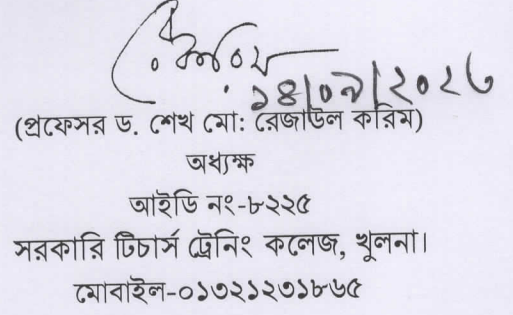 ১৪/০৯/২০২৬
(প্রফেসর ড. শেখ মো: রেজাউল করিম)
অধ্যক্ষ
আইডি নং-৮২২৫
সরকারি টিচার্স ট্রেনিং কলেজ, খুলনা।
মোবাইল-০১৩২১২৩১৮৬৫